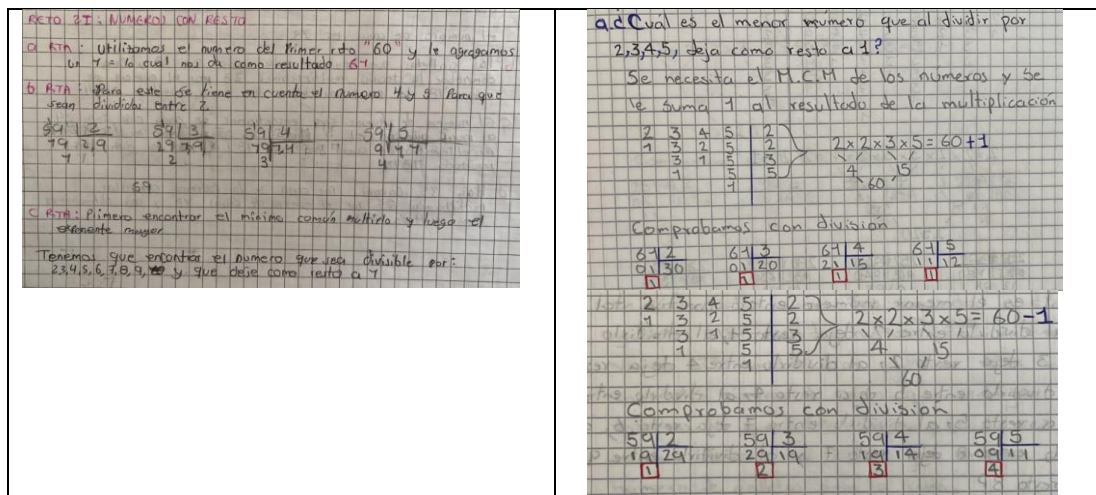 RETO 2I: NUMEROS CON RESTO
a RTA: Utilizamos el numero del Primer reto "60" y le agregamos
un 1 = lo cual nos da como resultado 61
b RTA: Para este se tiene en cuenta el numero 4 y 5 Para que
sean dividido entre 2.
59 2 59 3 59 4 59 5
19 29 29 19 19 14 9 11
1 2 3 4
59
C RTA: Primero encontrar el minimo común multiplo y luego el
exponente mayor
Tenemos que encontrar el numero que sea divisible por:
2,3,4,5,6,7,8,9, y que deje como resto a 1
a. ¿Cuál es el menor número que al dividir por
2,3,4,5, deja como resto a 1?
Se necesita el M.C.M de los números y se
le suma 1 al resultado de la multiplicación
2 3 4 5 2
1 3 2 5 2 2x2x3x5= 60+1
3 1 5 3 4 15
1 5 5 60
1
Comprobamos con división
61 2 61 3 61 4 61 5
01 30 01 20 21 15 11 12
1 1 1 1
2 3 4 5 2
1 3 2 5 2 2x2x3x5= 60-1
3 1 5 3 4 15
1 5 5
1 60
Comprobamos con división
59 2 59 3 59 4 59 5
19 29 29 19 19 14 09 11
1 2 3 4